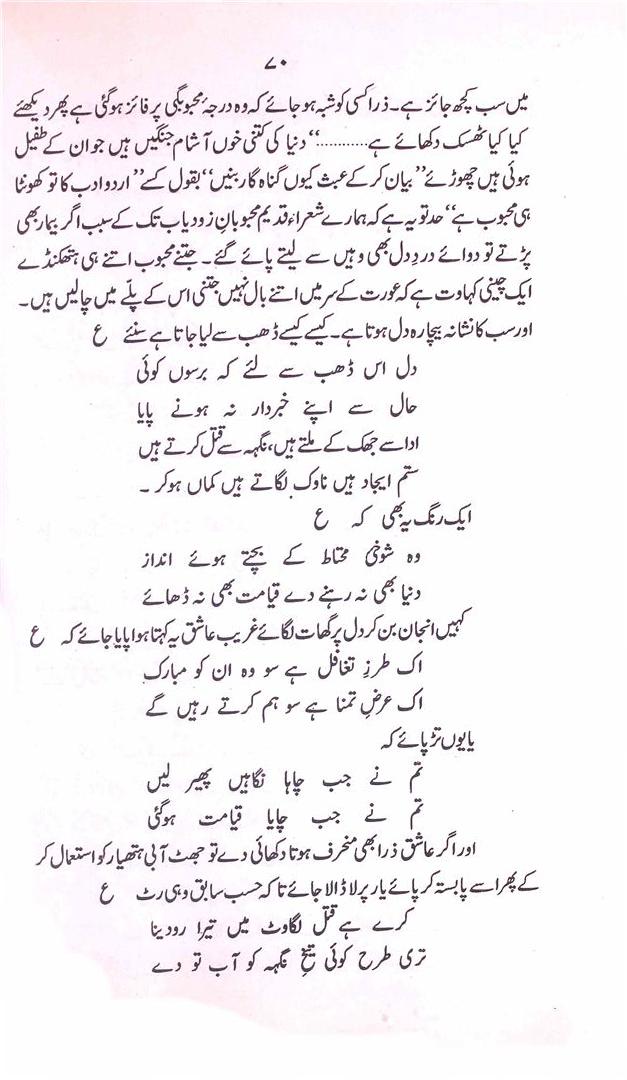 ۷۰
میں سب کچھ جائز ہے۔ ذرا کسی کو شبہ ہو جائے کہ وہ درجۂ محبوبگی پر فائز ہو گئی ہے پھر دیکھئے
کیا کیا ٹھسک دکھائے ہے............‘‘ دنیا کی کتنی خوں آشام جنگیں ہیں جو ان کے طفیل
ہوئی ہیں چھوڑئے ’’بیان کر کے عبث کیوں گناہ گار بنیں‘‘ بقول کسے ’’اردو ادب کا تو کھونٹا
ہی محبوب ہے‘‘ حد تو یہ ہے کہ ہمارے شعراء قدیم محبوبانِ زود یاب تک کے سبب اگر بیمار بھی
پڑتے تو دوائے دردِ دل بھی وہیں سے لیتے پائے گئے۔ جتنے محبوب اتنے ہی ہتھکنڈے
ایک چینی کہاوت ہے کہ عورت کے سر میں اتنے بال نہیں جتنی اس کے پلّے میں چالیں ہیں۔
اور سب کا نشانہ بیچارہ دل ہوتا ہے۔ کیسے کیسے ڈھب سے لیا جاتا ہے سنئے ع
دل اس ڈھب سے لئے کہ برسوں کوئی
حال سے اپنے خبردار نہ ہونے پایا
ادا سے جھک کے ملتے ہیں، نگہہ سے قتل کرتے ہیں
ستم ایجاد ہیں ناوک لگاتے ہیں کماں ہو کر۔
ایک رنگ یہ بھی کہ ع
وہ شوخیٔ محتاط کے بچتے ہوئے انداز
دنیا بھی نہ رہنے دے قیامت بھی نہ ڈھائے
کہیں انجان بن کر دل پر گھات لگائے غریب عاشق یہ کہتا ہوا پایا جائے کہ ع
اک طرزِ تغافل ہے سو وہ ان کو مبارک
اک عرضِ تمنا ہے سو ہم کرتے رہیں گے
یا یوں تڑپائے کہ
تم نے جب چاہا نگاہیں پھیر لیں
تم نے جب چاپا قیامت ہو گئی
اور اگر عاشق ذرا بھی منحرف ہوتا دکھائی دے تو جھٹ آبی ہتھیار کو استعمال کر
کے پھر اسے پابستہ کر پائے یار پر لا ڈالا جائے تاکہ حسب سابق وہی رٹ ع
کرے ہے قتل لگاوٹ میں تیرا رو دینا
تری طرح کوئی تیغِ نگہہ کو آب تو دے